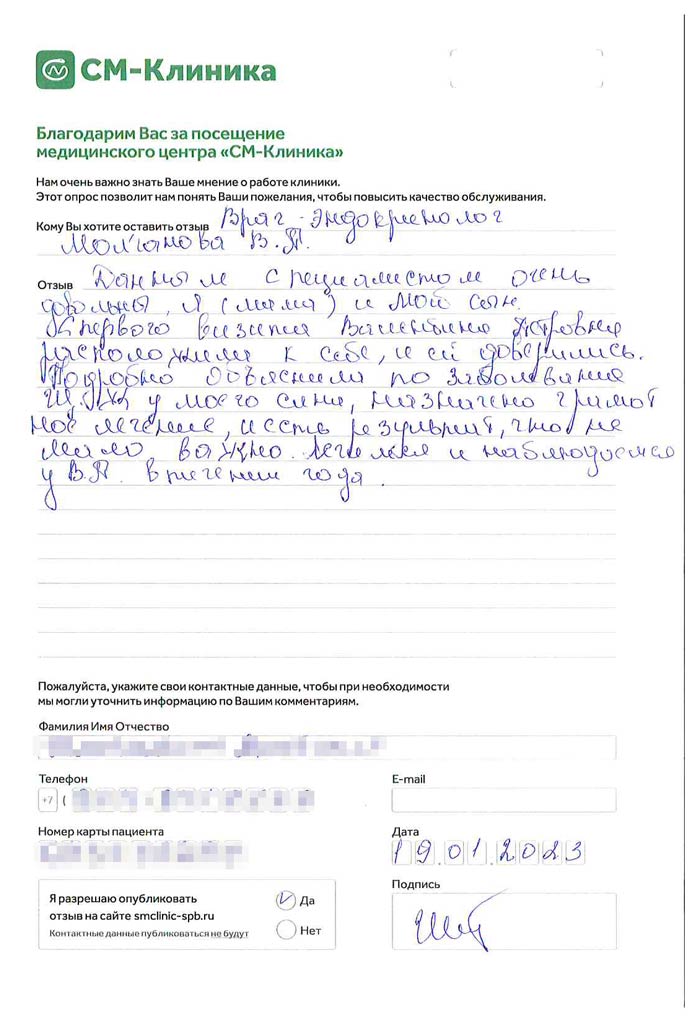 СМ-Клиника
Благодарим Вас за посещение
медицинского центра «СМ-Клиника»
Нам очень важно знать Ваше мнение о работе клиники.
Этот опрос позволит нам понять Ваши пожелания, чтобы повысить качество обслуживания.
Кому Вы хотите оставить отзыв Врач-эндокринолог
Молчанова В.П.
Отзыв Данным специалистом очень
довольны, я (мама) и мой сын.
С первого визита Валентина Петровна
расположила к себе, и ей доверились.
Подробно объяснила по заболеванию
Щ.Ж. у моего сына, назначено грамот
ное лечение, и есть результат, что не
мало важно. Лечимся и наблюдаемся
у В.П. в течении года.
Пожалуйста, укажите свои контактные данные, чтобы при необходимости
мы могли уточнить информацию по Вашим комментариям.
Фамилия Имя Отчество
Телефон E-mail
+7 (
Номер карты пациента Дата
19.01.2023
Я разрешаю опубликовать Да Подпись
отзыв на сайте smclinic-spb.ru
Контактные данные публиковаться не будут Нет